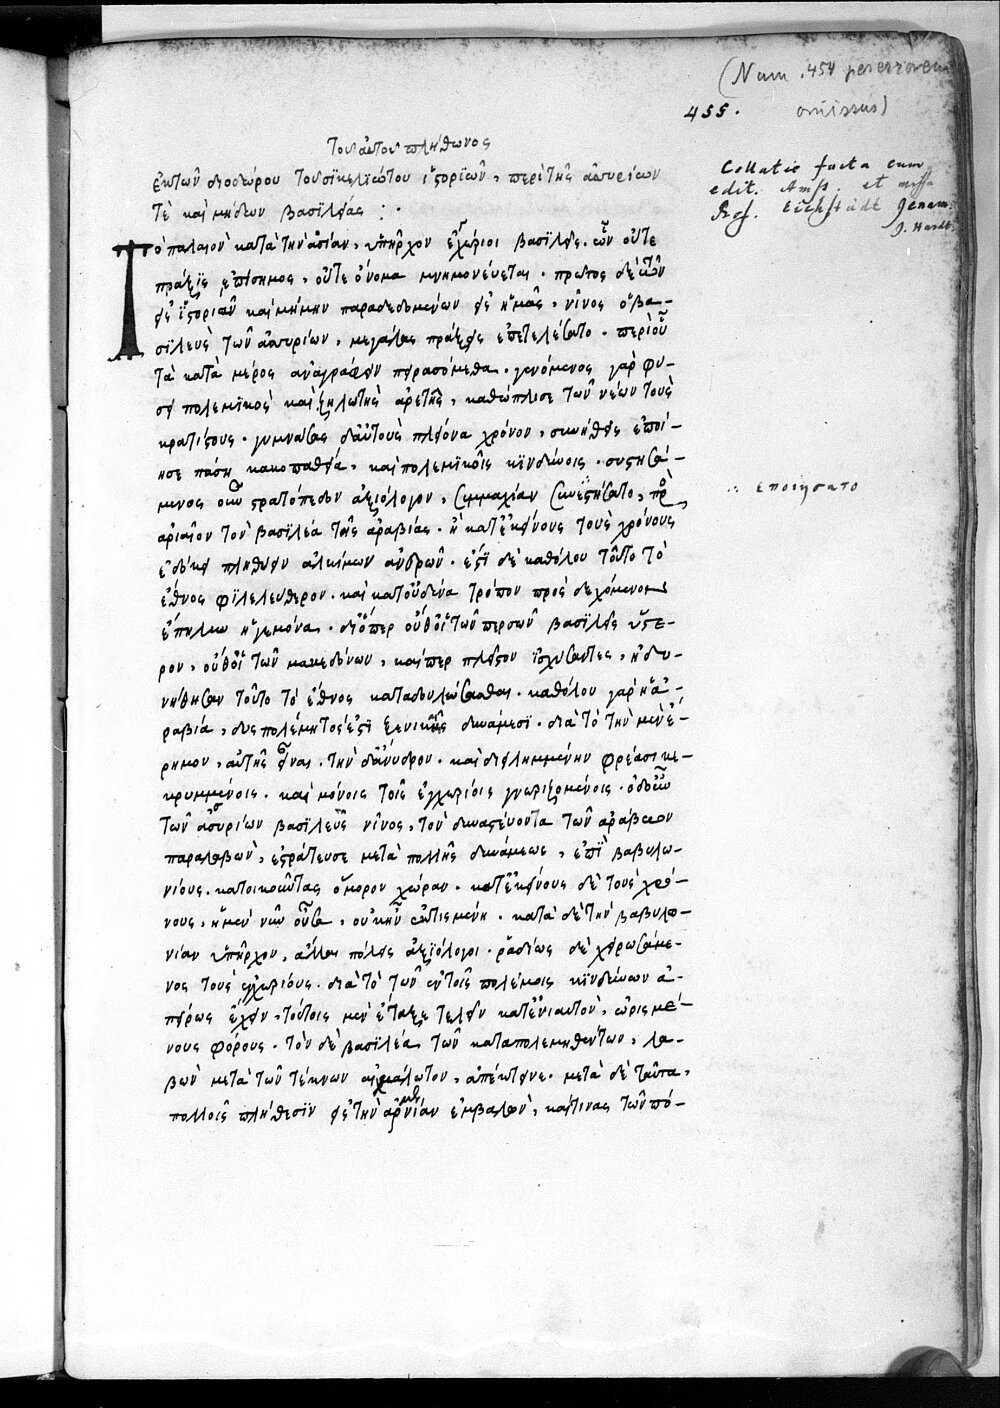 (Num. 454 per errorem
omissus)
455.
Τοῦ αὐτοῦ πλήθωνος
ἐκ τῶν διοδώρου τοῦ σικελιώτου ἱστοριῶν, περὶ τῆς ἀσσυρίων
τὲ καὶ μήδων βασιλείας :·
Collatio facta cum
edit. Amst. et missa
Prof. Eichstädt Jenam.
J. Hardt.
Τὸ παλαιὸν κατὰ τὴν ἀσίαν, ὑπῆρχον ἐγχώριοι βασιλεῖς. ὧν οὔτε
πρᾶξις ἐπίσημος, οὔτε ὄνομα μνημονεύεται. πρῶτος δὲ τῶν
εἰς ἱστορίαν καὶ μνήμην παραδεδομένων εἰς ἡμᾶς, νῖνος ὁ βα-
σιλεὺς τῶν ἀσσυρίων, μεγάλας πράξεις ἐπετελέσατο. περὶ οὗ
τὰ κατὰ μέρος ἀναγράφειν πειρασόμεθα. γενόμενος γὰρ φύ-
σει πολεμικὸς καὶ ζηλωτὴς ἀρετῆς, καθώπλισε τῶν νέων τοὺς
κρατίστους. γυμνάσας δ' αὐτοὺς πλείονα χρόνον, συνήθεις ἐποί-
ησε πάσῃ κακοπαθείᾳ, καὶ πολεμικοῖς κινδύνοις. συστησά-
μενος οὖν στρατόπεδον ἀξιόλογον, συμμαχίαν συνεστήσατο, πρὸς
∴ εποιησατο
ἀριαῖον τὸν βασιλέα τῆς ἀραβίας. ἣ κατ' ἐκείνους τοὺς χρόνους
ἐδόκει πλήθειν ἀλκίμων ἀνδρῶν. ἔστι δὲ καθόλου τοῦτο τὸ
ἔθνος φιλελεύθερον. καὶ κατ' οὐδένα τρόπον προσδεχόμενον
ἔπηλυν ἡγεμόνα. διόπερ οὔθ' οἱ τῶν περσῶν βασιλεῖς ὕστε-
ρον, οὔθ' οἱ τῶν μακεδόνων, καίπερ πλεῖστον ἰσχύσαντες, ἠδυ-
νήθησαν τοῦτο τὸ ἔθνος καταδουλώσασθαι. καθόλου γὰρ ἡ ἀ-
ραβία, δυσπολέμητός ἐστι ξενικαῖς δυνάμεσι. διὰ τὸ τὴν μὲν ἔ-
ρημον, αὐτῆς εἶναι. τὴν δ' ἄνυδρον. καὶ διειλημμένην φρέασι κε-
κρυμμένοις. καὶ μόνοις τοῖς ἐγχωρίοις γνωριζομένοις. ὁ δ' οὖν
τῶν ἀσσυρίων βασιλεὺς νῖνος, τὸν δυναστεύοντα τῶν ἀράβων
παραλαβὼν, ἐστράτευσε μετὰ πολλῆς δυνάμεως, ἐπὶ βαβυλω-
νίους. κατοικοῦντας ὅμορον χώραν. κατ' ἐκείνους δὲ τοὺς χρό-
νους, ἡ μὲν νῦν οὖσα, οὐκ ἦν ἐκτισμένη. κατὰ δὲ τὴν βαβυλω-
νίαν ὑπῆρχον, ἄλλαι πόλεις ἀξιόλογοι. ῥᾳδίως δὲ χειρωσάμε-
νος τοὺς ἐγχωρίους. διὰ τὸ τῶν ἐν τοῖς πολέμοις κινδύνων ἀ-
πείρως ἔχειν, τούτοις μὲν ἔταξε τελεῖν κατ' ἐνιαυτὸν, ὡρισμέ-
νους φόρους. τὸν δὲ βασιλέα τῶν καταπολεμηθέντων, λα-
βὼν μετὰ τῶν τέκνων αἰχμάλωτον, ἀπέκτεινε. μετὰ δὲ ταῦτα,
πολλοῖς πλήθεσιν εἰς τὴν ἀρμενίαν ἐμβαλὼν, καί τινας τῶν πό-